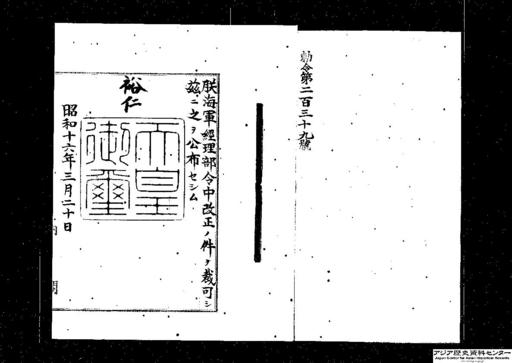 勅令第二百三十九號
朕海軍經理部令中改正ノ件ヲ裁可シ
茲ニ之ヲ公布セシム
裕仁
天皇
御璽
昭和十六年三月二十日
内
閣
アジア歴史資料センター
Japan Center for Asian Historical Records